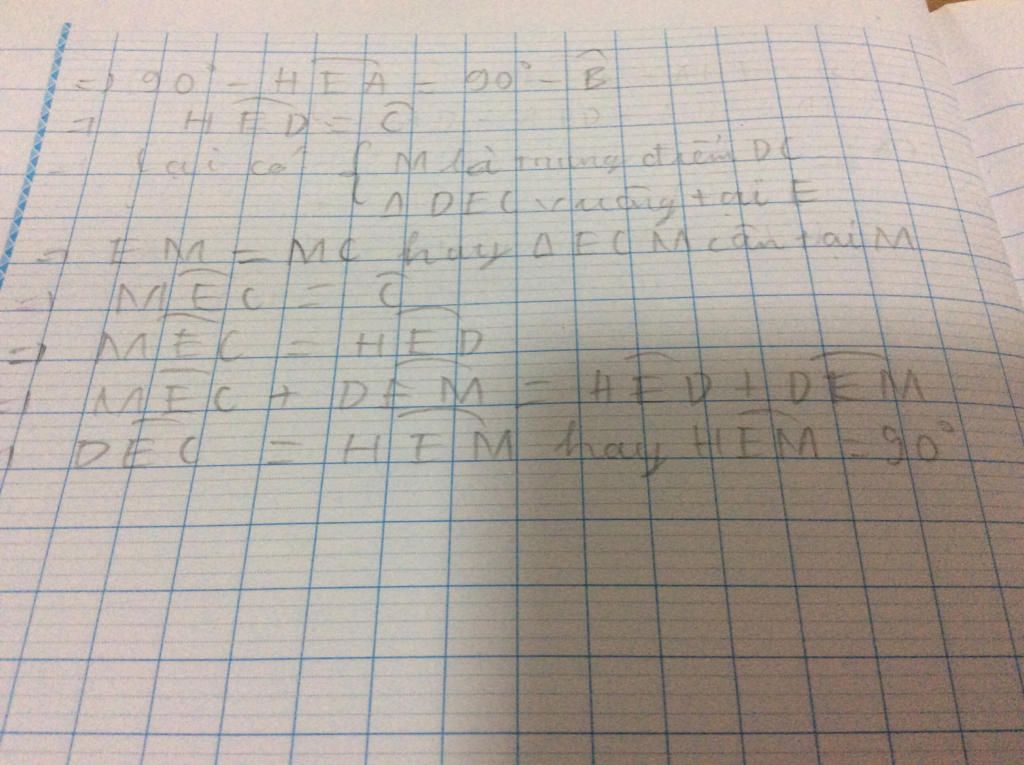 => 90° - HEA = 90° - B̂
=> HED = Ĉ
Lại có { M là trung điểm DC
Δ DEC vuông tại E
=> EM = MC hay Δ ECM cân tại M
=> MEC = Ĉ
=> MEC = HED
=> MEC + DEM = HED + DEM
=> DEC = HEM hay HEM = 90°